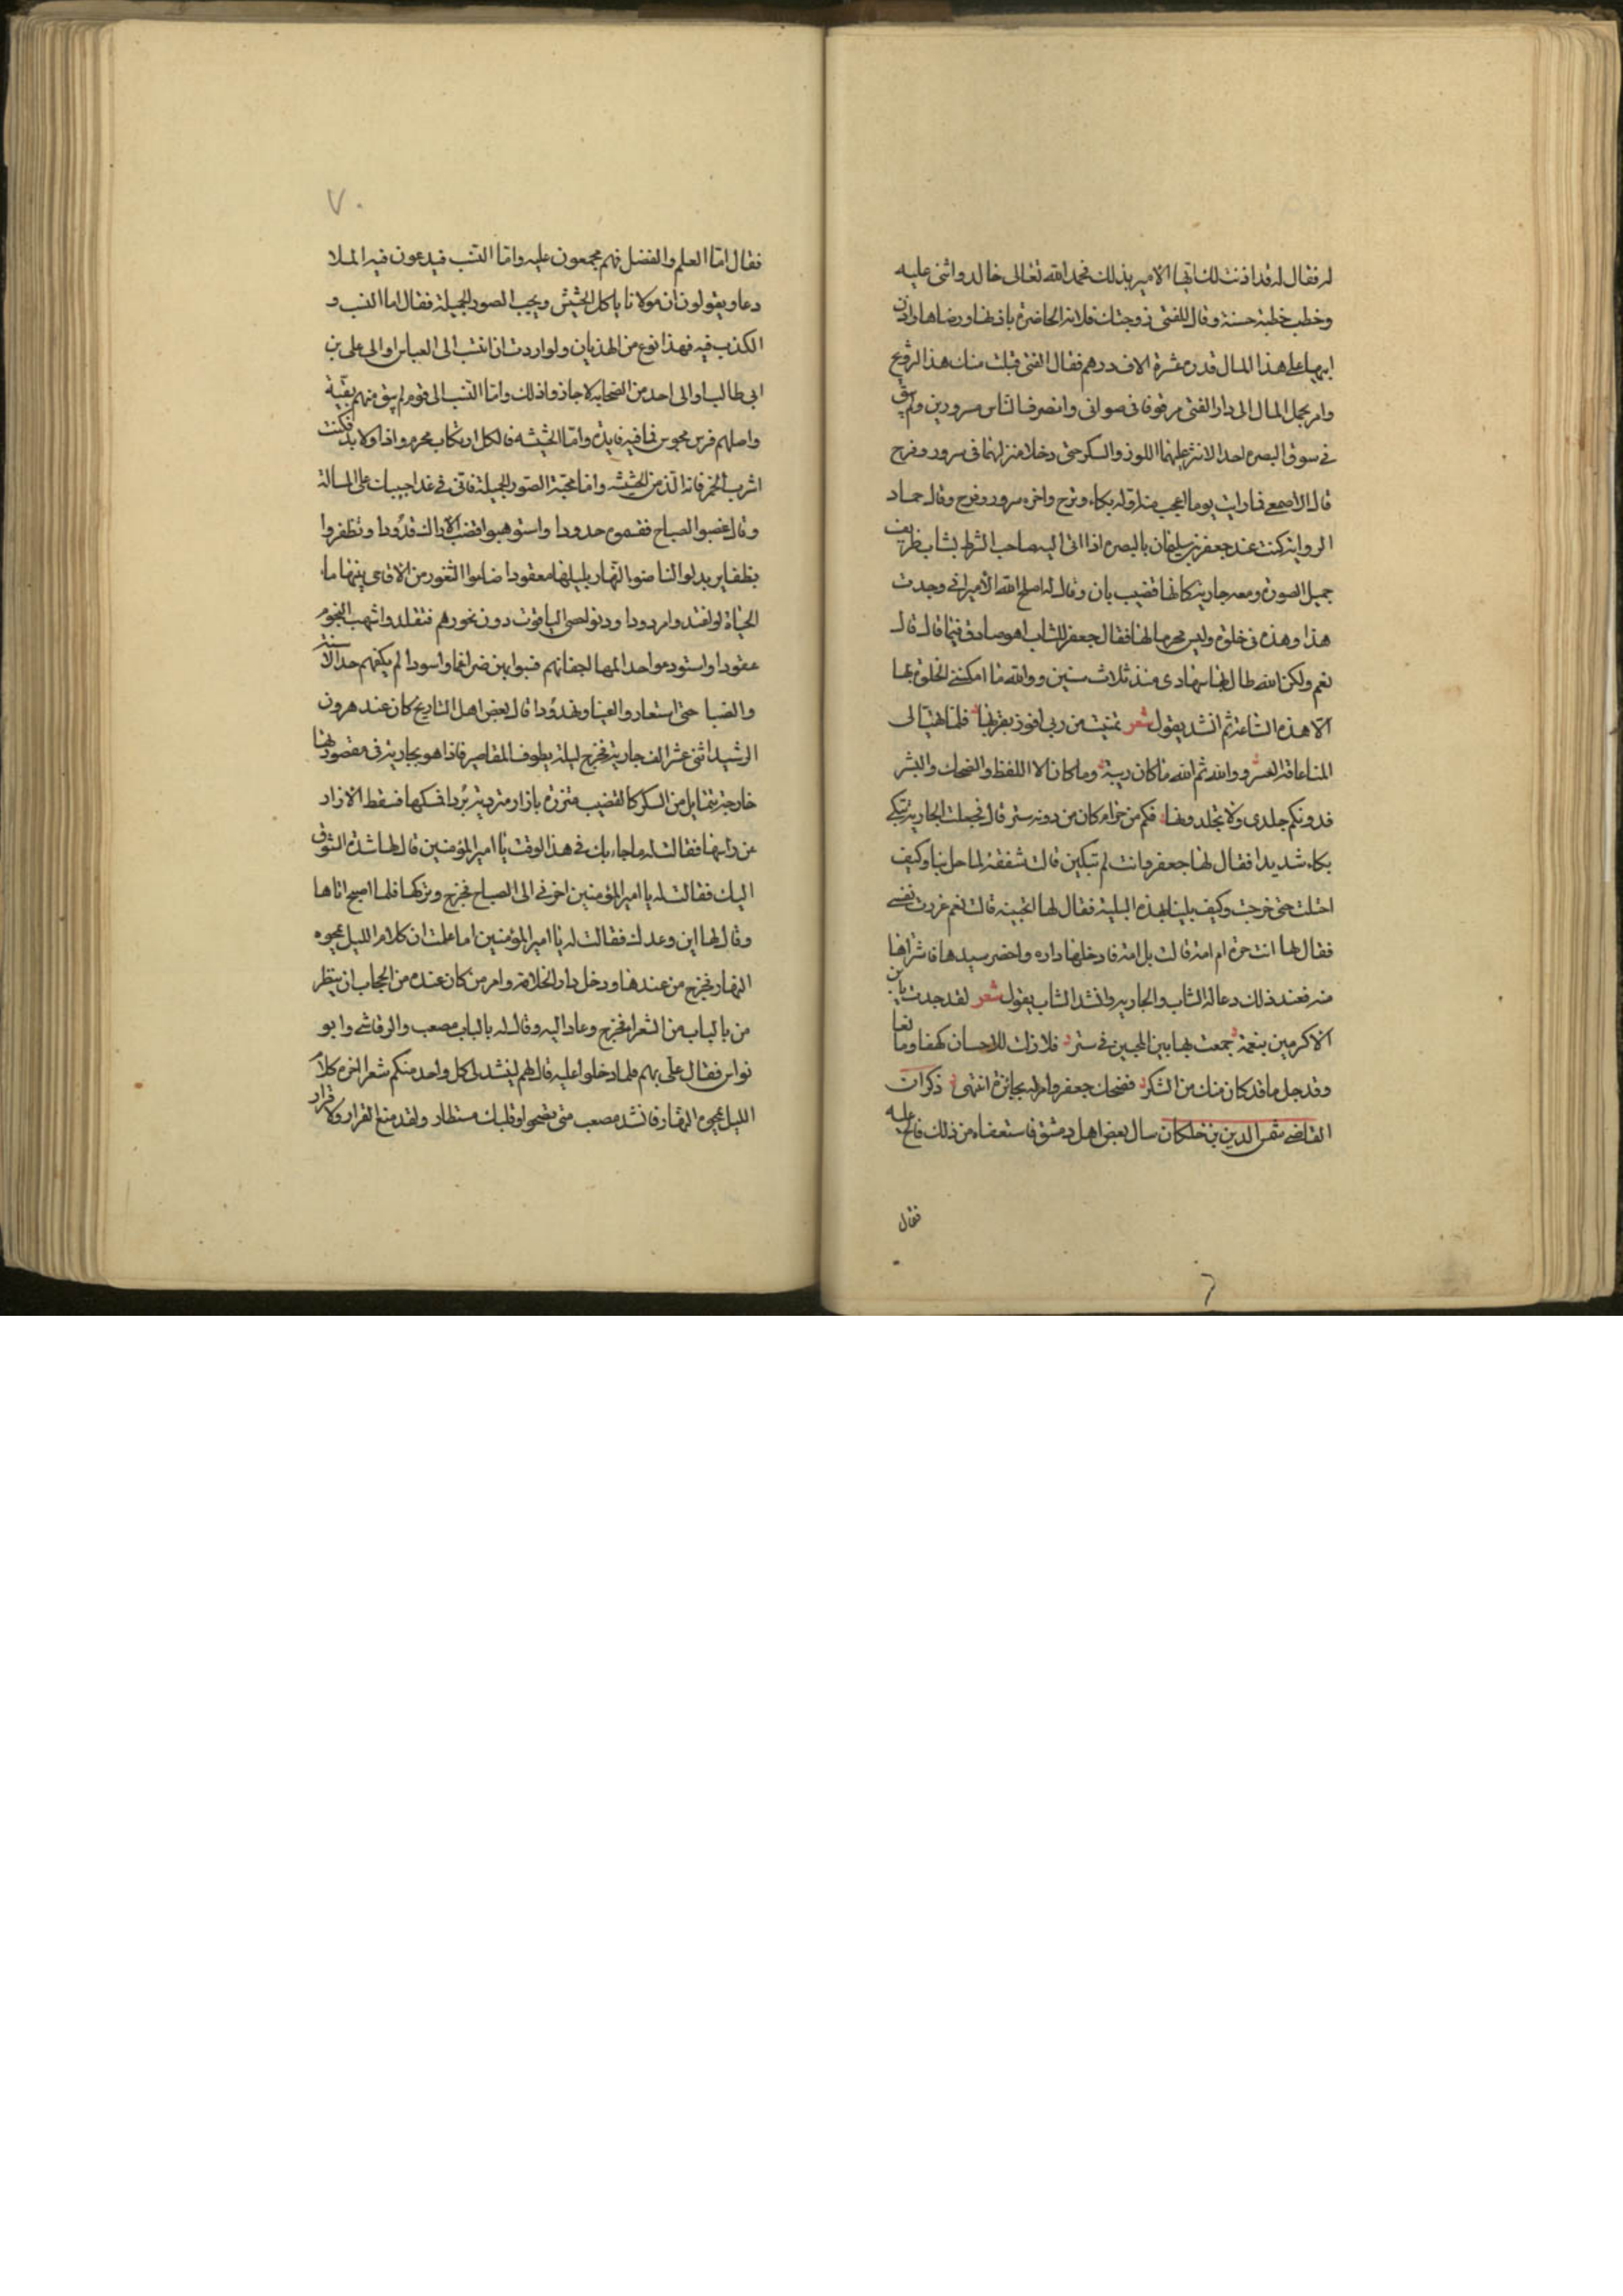 له فقال له قد اذنت لك ايها الامير بذلك فحمد الله تعالى خالد واثنى عليه
وخطب خطبة حسنة وقال للفتى زوجتك فلانة الحاضرة باذنها ورضاها واذن
ابيها على هذا المال قدره عشرة الاف درهم فقال الفتى قبلت منك هذا التزويج
وامر بحمل المال الى دار الفتى مزفوفا في صواني وانصرف الناس مسرورين ولم يبق
في سوق البصره احد الا نثر عليهما اللوز والسكر حتى دخلا منزلهما في سرور وفرح
قال الاصمعي فما رايت يوما اعجب منه اوله بكاء وترح واخره سرور وفرح وقال حماد
الراوية كنت عند جعفر بن سليمان بالبصره اذ اتى اليه صاحب الشرط بشاب ظريف
جميل الصورة ومعه جارية كانها قضيب بان وقال له اصلح الله الامير اني وجدت
هذا وهذه في خلوة وليس محرما لها فقال جعفر للشاب اهو صادق فيما قال قال
نعم ولكن الله طال لها سهادى منذ ثلاث سنين ووالله ما امكنني الخلوة بها
الا هذه الساعة ثم انشد يقول شعر تمنيت من ربي افوز بقربها فلما تهيا لى
المنا عاقه العسر ووالله ثم الله ما كان ريبة وما كان الا اللفظ والضحك والبشر
فدونكم جلدى ولا تجلدونها فكم من حرام كان من دونه ستر قال فجعلت الجارية تبكي
بكاء شديدا فقال لها جعفر وانت لم تبكين قالت شفقة لما حل بنا وكيف
احتلت حتى خرجت وكيف بلينا بهذه البلية فقال لها اتحبينه قالت نعم غررت نفسي
فقال لها انت حرة ام امة قالت بل امة فادخلها داره واحضر سيدها فاشتراها
منه فعند ذلك دعا له الشاب والجاريه وانشد الشاب يقول شعر لقد جدت يا بن
الاكرمين بنعمة جمعت بها بين المحبين في ستر فلا زلت للاحسان كهفا وما
وقد جل ما قد كان منك من الشكر فضحك جعفر وامر له بجائزة انتهى ذكر ان
القاضي شمس الدين بن خلكان سال بعض اهل دمشق فاستعفاه من ذلك فالح عليه
فقال
٧٠
فقال اما العلم والفضل فهم مجمعون عليه واما النسب فيدعون فيه الملا
دعا ويقولون ان مولانا ياكل الحشيش ويحب الصور الجميلة فقال اما النسب و
الكذب فيه فهذا نوع من الهذيان ولو اردت ان انتسب الى العباس او الى علي بن
ابي طالب او الى احد من الصحابه لاجازوا ذلك واما النسب الى قوم لم يبق منهم بقية
واصلهم فرس مجوس فما فيه فايدة واما الحشيشه فالكل ارتكاب محرم واذا ولا بد فكنت
اشرب الخمر فانه الذ من الحشيشه واما محبة الصور الجميلة فاني في غد اجيبك على المسالة
وقال غصبوا الصباح فقسموه حدودا واستوهبوا قضب الاراك قدودا وتظفروا
بظفاير بدلوا لنا ضوء النهار بليلها معقودا صانوا الثغور من الاقاح بينها ماء
الحياة لو اغتدا مورودا ودنوا لحصى الياقوت دون نحورهم فتقلدوا شهب النجوم
عقودا واستودعوا حدا المها اجفانهم فسبوا بهن ضراغما واسودا لم يكفهم حد الاسنة
والضبا حتى استعاروا اعينا ونهدودا قال بعض اهل التاريخ كان عند هرون
الرشيد اثني عشر الف جارية فخرج ليلة يطوف المقاصير فاذا هو بجارية في مقصورتها
خارجة تتمايل من السكر كالقضيب متزرة بازار مترديه برداء فمسكها فسقط الازار
عن رايها فقالت له ما جاء بك في هذا الوقت يا امير المؤمنين قال لها شدة الشوق
اليك فقالت له يا امير المؤمنين اخرني الى الصباح فخرج وتركها فلما اصبح اتاها
وقال لها اين وعدك فقالت له يا امير المؤمنين اما علمت ان كلام الليل يمحوه
النهار فخرج من عندها ودخل دار الخلافة وامر من كان عنده من الحجاب ان ينظر
من بالباب من الشعراء فخرج وعاد اليه وقال له بالباب مصعب والرقاشي وابو
نواس فقال علي بهم فلما دخلوا عليه قال لهم لينشد لى كل واحد منكم شعرا اخره كلام
الليل يمحوه النهار فانشد مصعب متى تصحوا وقلبك مستطار ولقد منع القرار ولا قرار